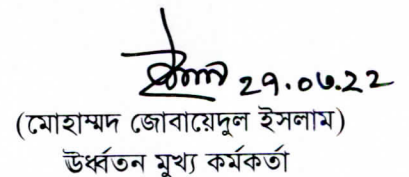 ২৭.০৬.২২
(মোহাম্মদ জোবায়েদুল ইসলাম)
ঊর্ধ্বতন মুখ্য কর্মকর্তা